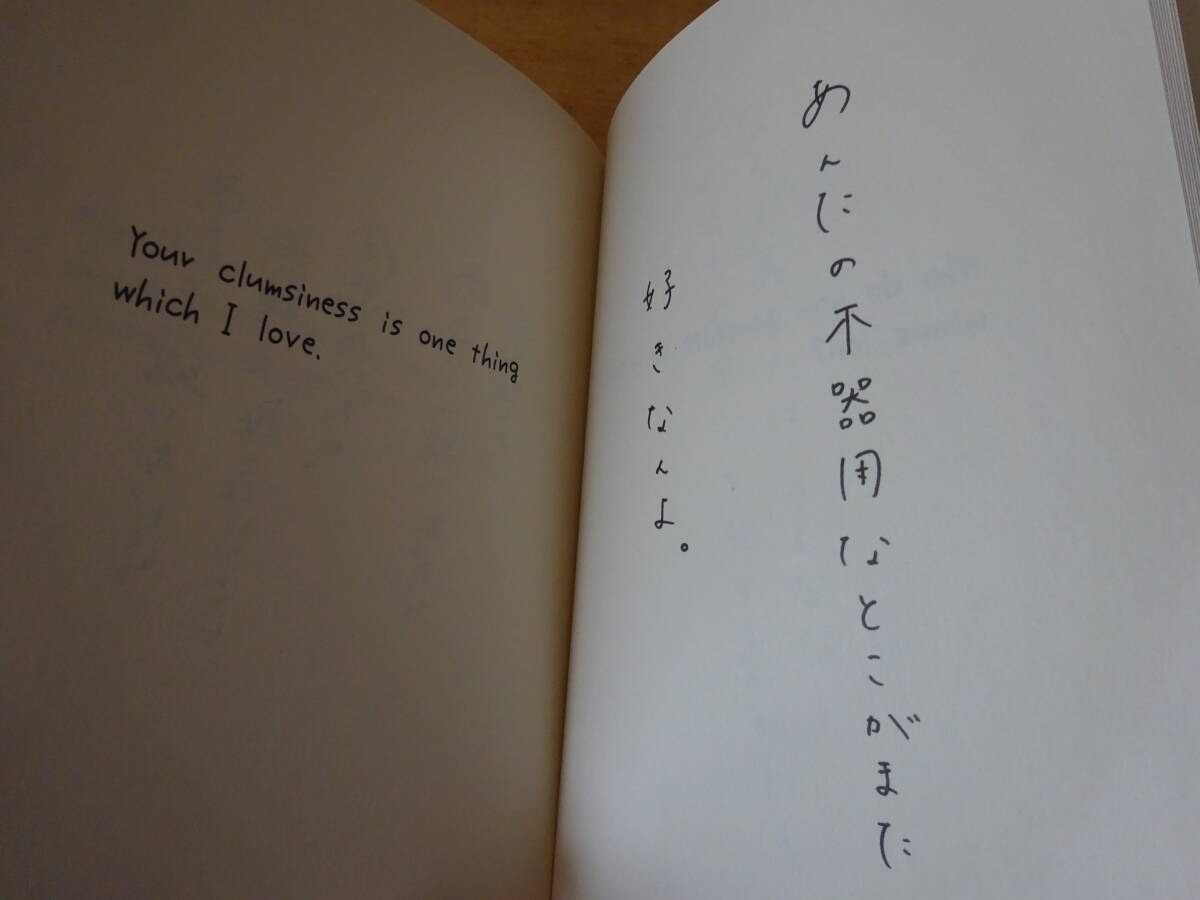 Your clumsiness is one thing
which I love.
あんたの不器用なとこがまた
好きなんよ。